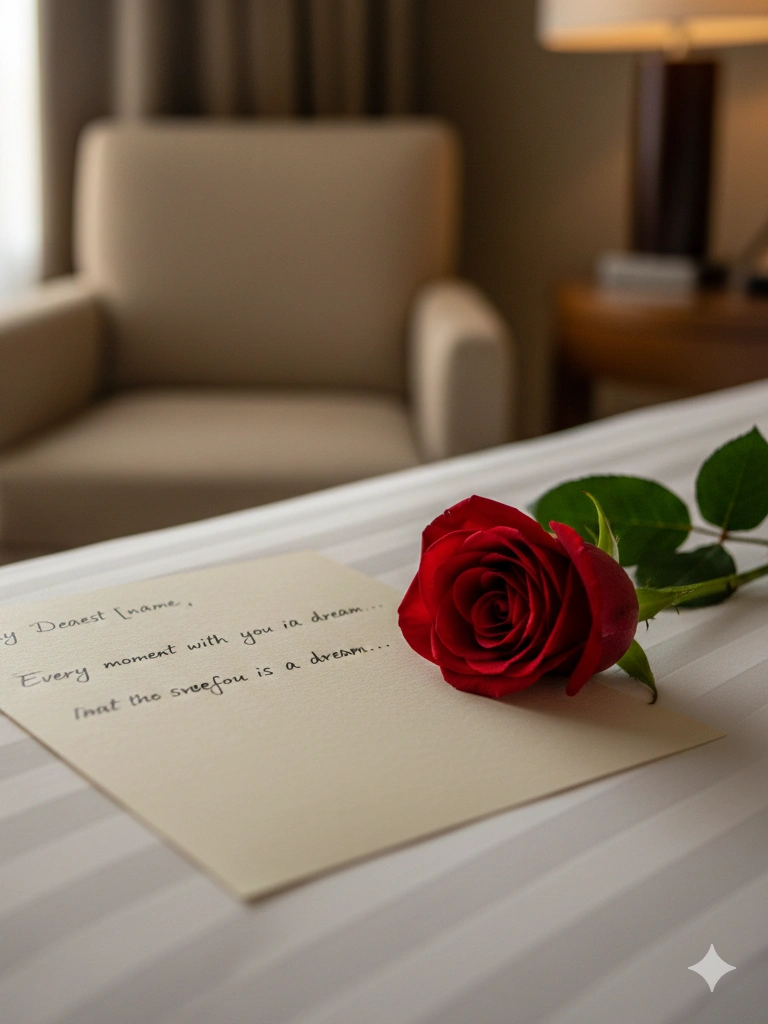 y Deaest [name,
Every moment with you ia dream...
that the sreefou is a dream...